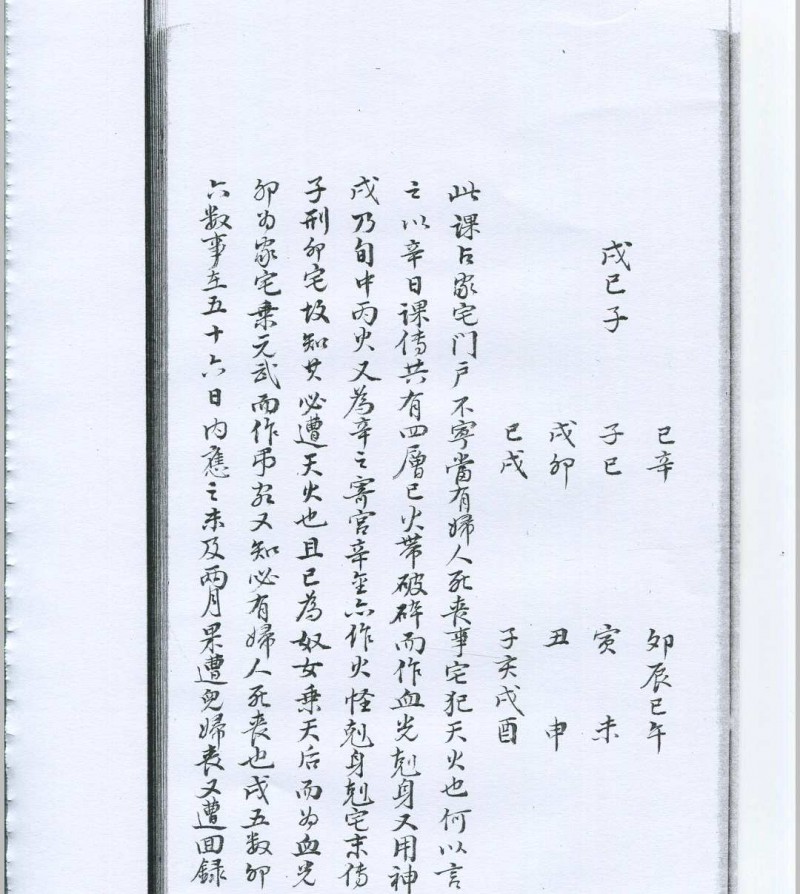 戌巳子
巳辛
子巳
戌卯
巳戌
卯辰巳午
寅 未
丑 申
子亥戌酉
此课占家宅门户不寧當有婦人死丧事宅犯天火也何以言
之以辛日课传共有四層巳火带破碎而作血光尅身又用神
戌乃旬中丙火又為辛之寄宫辛金亦作火怪尅身尅宅末传
子刑卯宅故知其必遭天火也且巳為奴女乗天后而为血光
卯为家宅乗元武而作弔客又知必有婦人死丧也戌五数卯
六数事在五十六日内應之未及两月果遭兒婦丧又遭回録